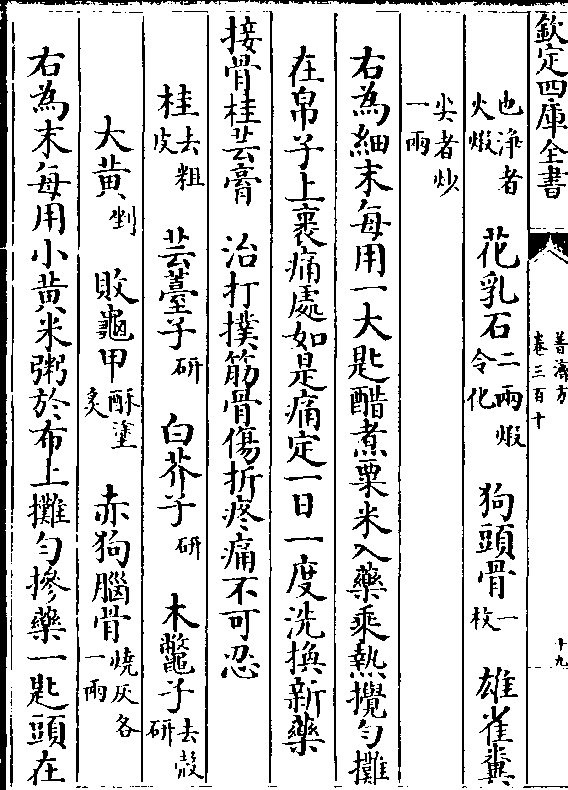 欽定四庫全書
普濟方
卷三百十
十九
也淨者火煅 花乳石二兩煅令化 狗頭骨一枚 雄雀糞
尖者炒一兩
右為細末每用一大匙醋煮粟米入藥乘熱攪勻攤
在帛子上裹痛處如是痛定一日一度洗換新藥
接骨桂芸膏 治打撲筋骨傷折疼痛不可忍
桂去粗皮 芸薹子研 白芥子研 木鼈子去殼研
大黄剉 敗龜甲酥塗炙 赤狗腦骨燒灰各一兩
右為末每用小黄米粥於布上攤勻摻藥一匙頭在